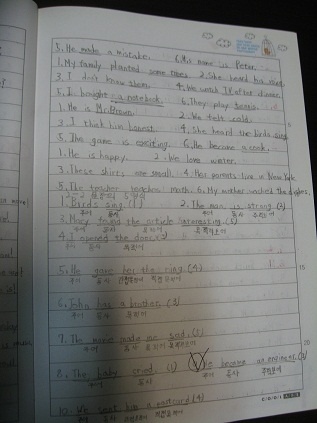 5. He made a mistake. 6. His name is Peter.
1. My family planted some trees 2. She heard
3. I don't know them. 4. We watch TV after dinner.
5. I bought a notebook. 6. They play tennis.
1. He is Mr. Brown. 2. We felt cold.
3. I think him honest. 4. She heard the birds sing
5. The game is exciting. 6. He became a cook.
1. He is happy. 2. We love winter.
3. These shirts are small. 4. Her parents live in New York.
5. The teacher teaches math. 6. My mother washed the dishes.
1. Birds sing. (1) 2. The man is strong. (2)
주어 동사 주어 동사 주격보어
3. Mary found the article interesting. (5)
주어 동사 목적어 목적격보어
4. I opened the door. (3)
주어 동사 목적어
5. He gave her the ring. (4)
주어 동사 간접목적어 직접목적어
6. John has a brother. (3)
주어 동사 목적어
7. The movie made me sad. (5)
주어 동사 목적어 목적격보어
8. The baby cried. (1) 9. He became an engineer. (2)
주어 동사 주어 동사 주격보어
10. We sent him a postcard. (4)
주어 동사 간접목적어 직접목적어